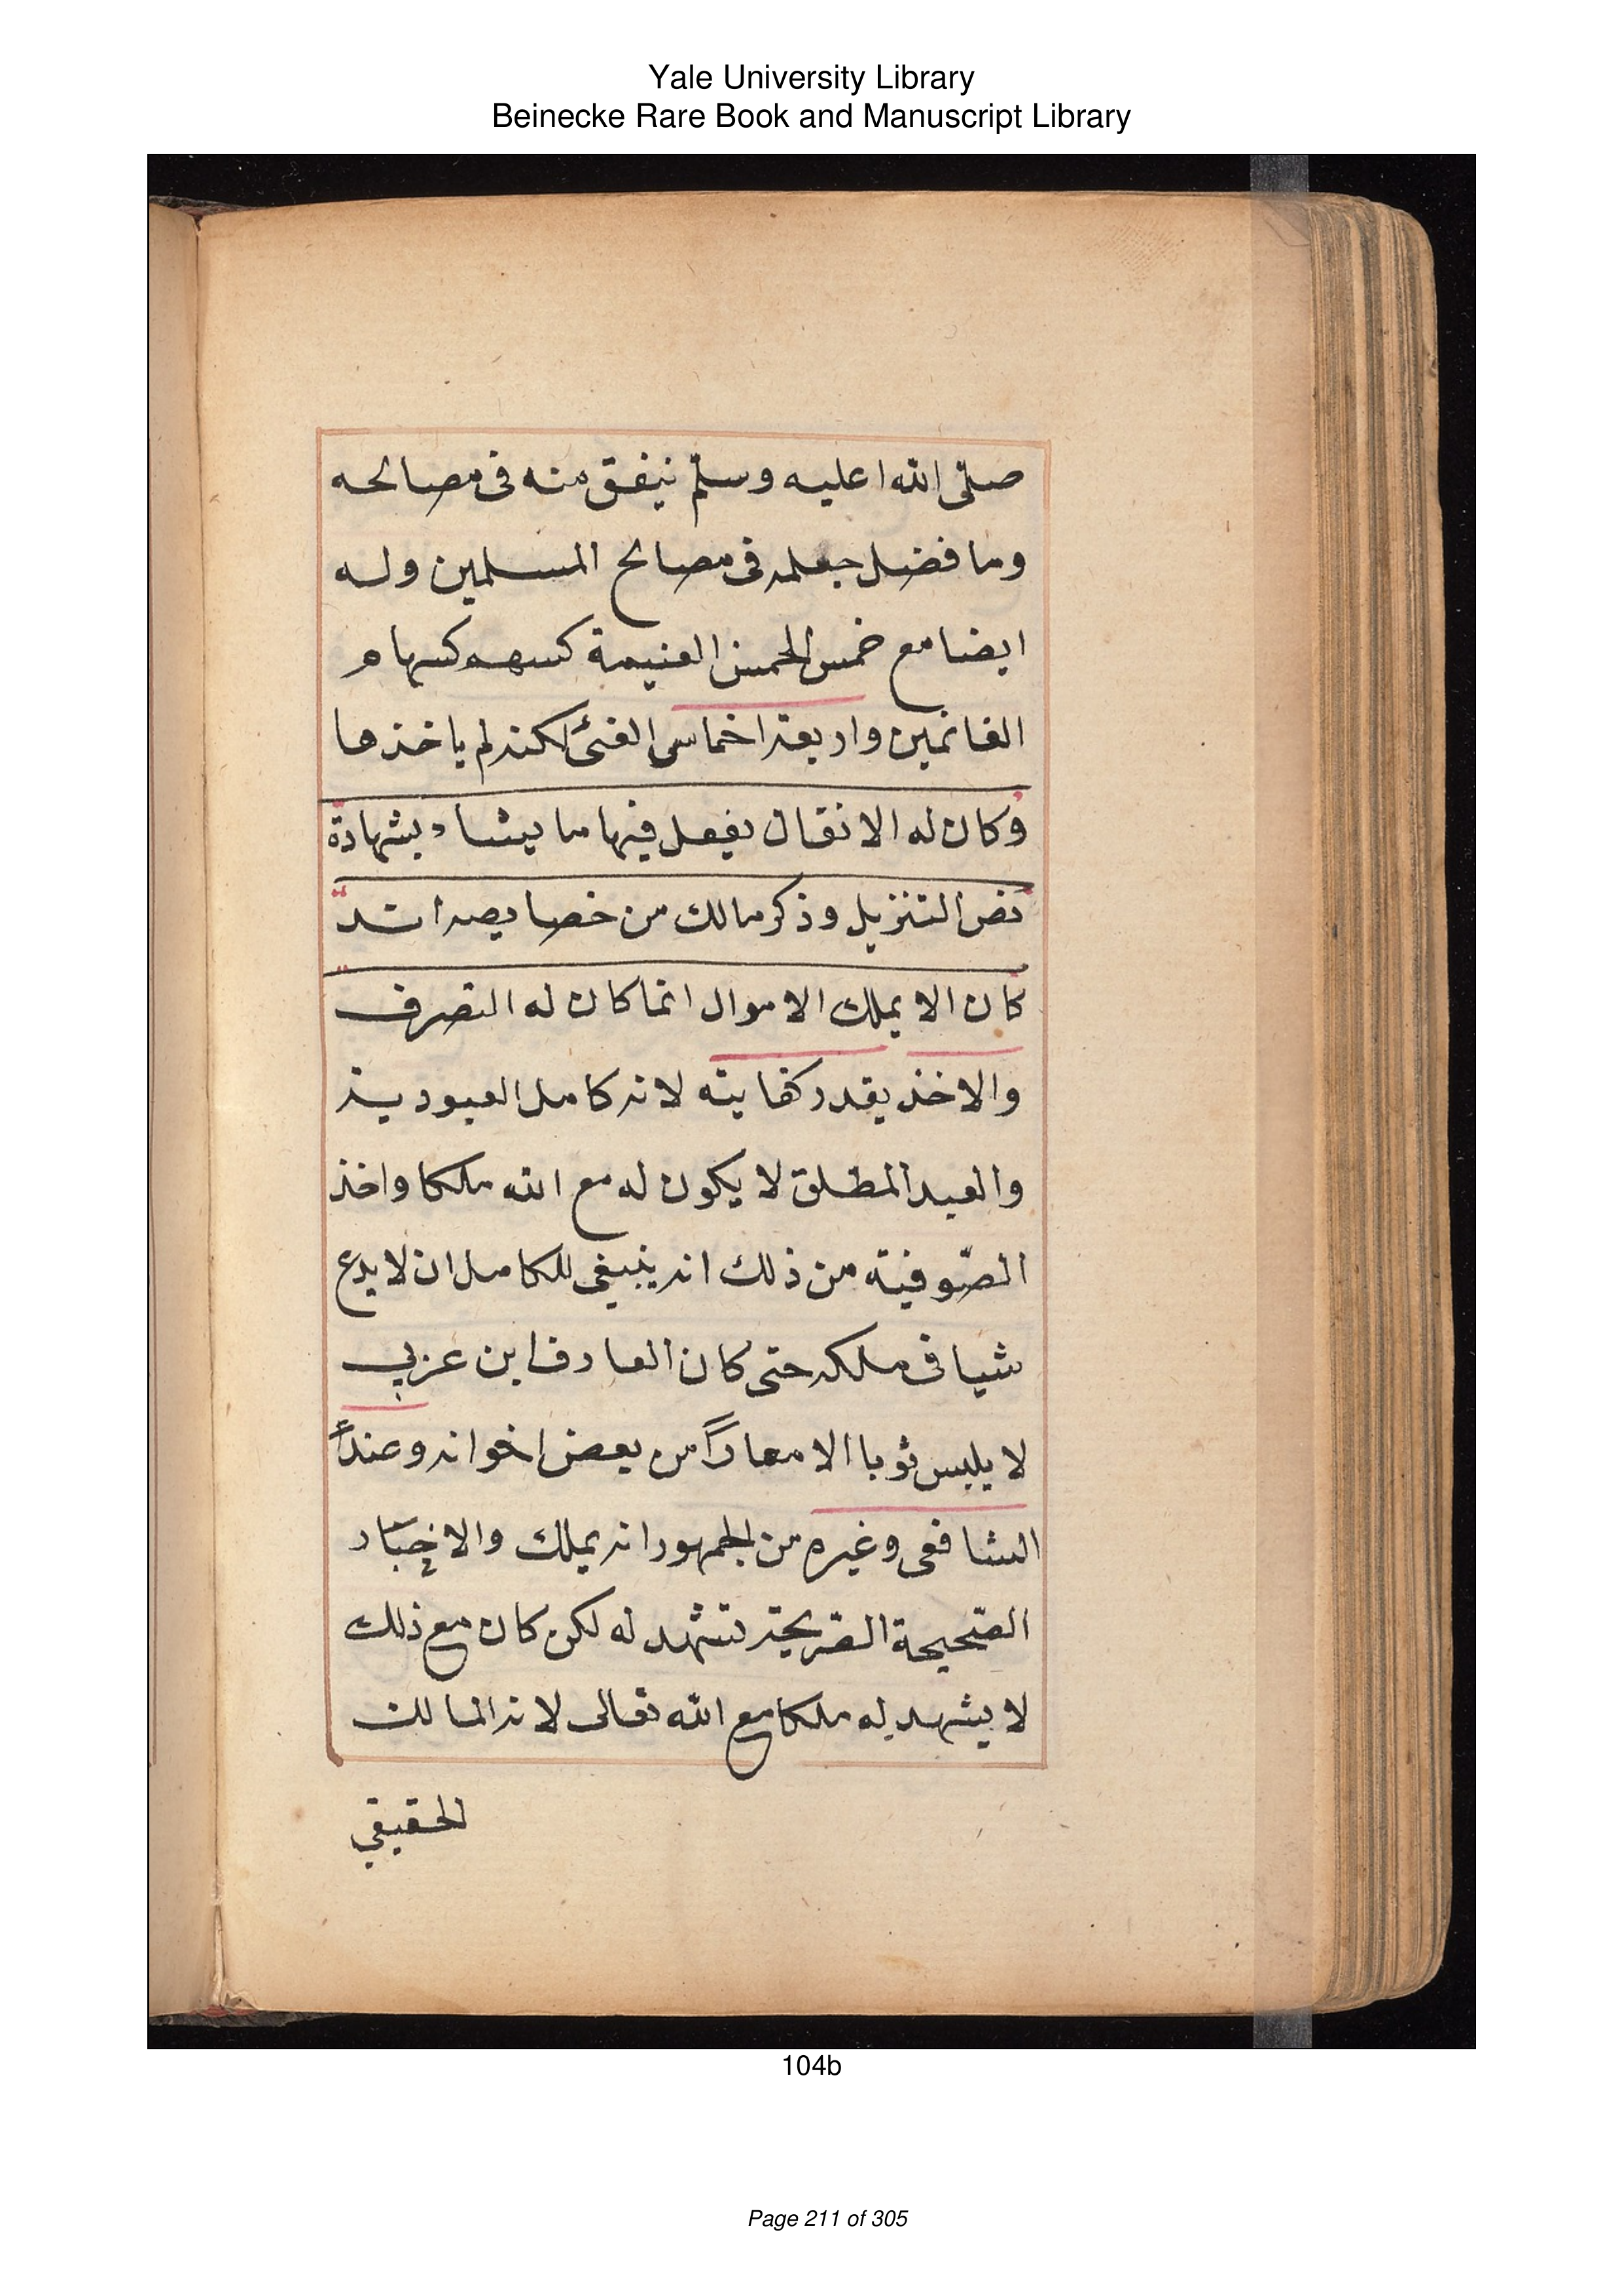 Yale University Library
Beinecke Rare Book and Manuscript Library
صلّى الله عليه وسلّم ينفق منه فى مصالحه
وما فضل جعله فى مصالح المسلمين وله
ايضا مع خمس الخمس الغنيمة كسهم كسهام
الغانمين واربعة اخماس الفئ لكنه لم ياخذها
وكان له الانفال يفعل فيها ما يشاء بشهادة
نص التنزيل وذكر مالك من خصايصه انه
كان الا يملك الاموال انما كان له التصرف
والاخذ بقدر كفايته لانه كامل العبودية
والعبد المطلق لا يكون له مع الله ملكا واخذ
الصّوفيّة من ذلك انه ينبغى للكامل ان لا يدع
شيا فى ملكه حتى كان العارف ابن عربي
لا يلبس ثوبا الا معاراً من بعض اخوانه وعند
الشافعى وغيره من الجمهور انه يملك والاخبار
الصّحيحة الصّريحة تشهد له لكن كان مع ذلك
لا يشهد له ملكا مع الله تعالى لانه المالك
الحقيقي
104b
Page 211 of 305